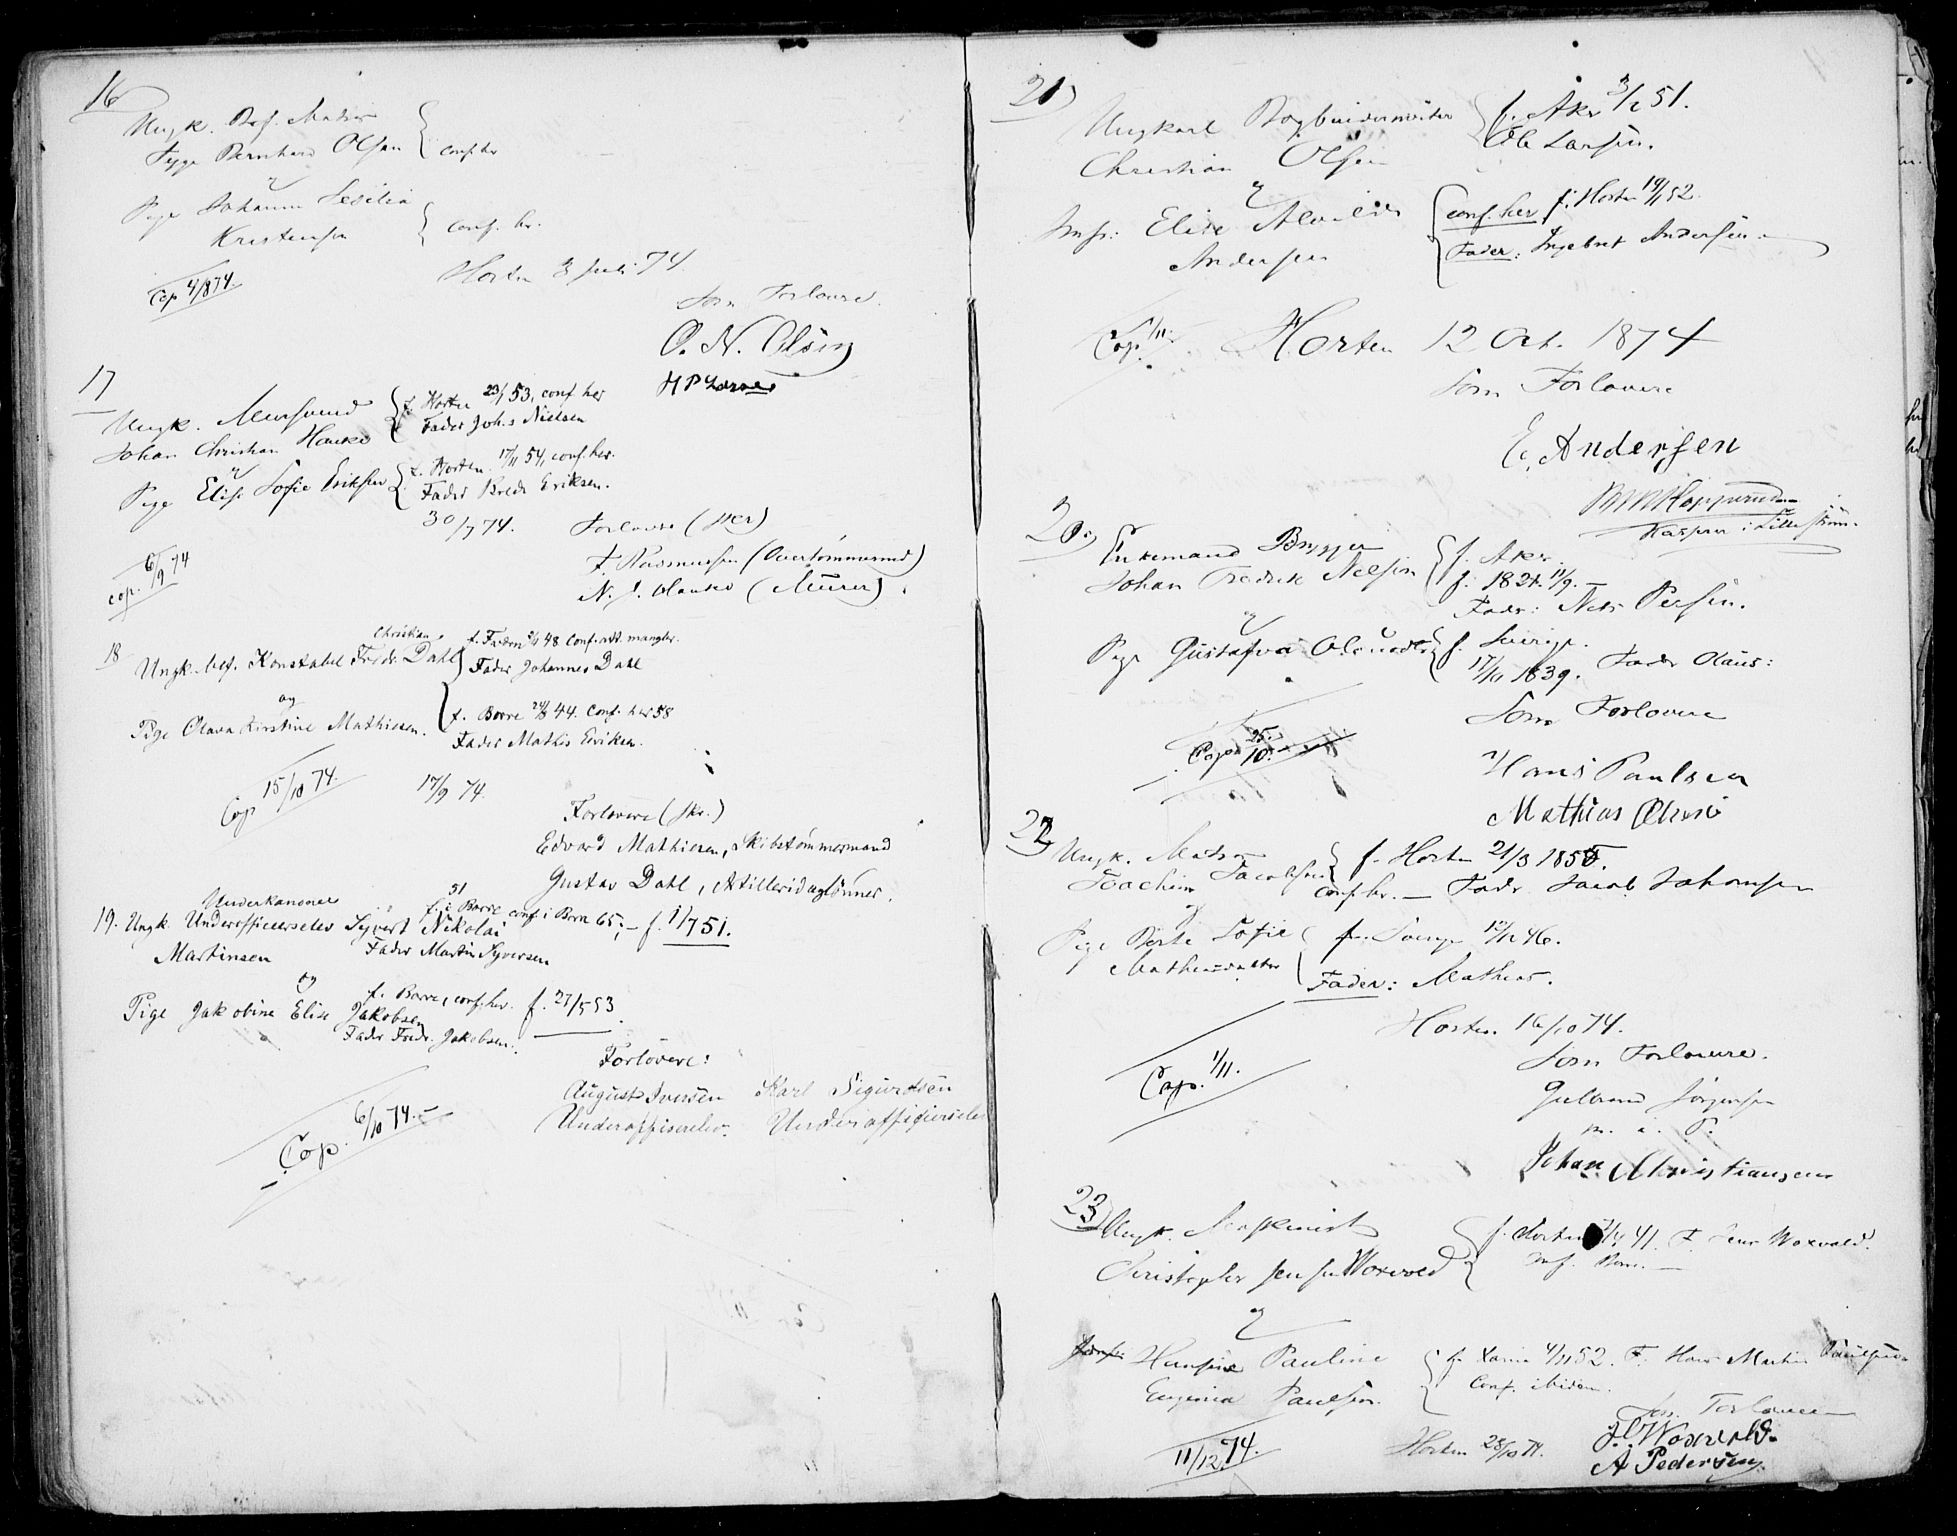 16
Ungk. Bef. Matros
Tygge Bernhard Olsen { conf. her
&
Pige Johanne Sesilia
Kristensen { conf. her.
Horten 3 Juli 74.
Cop 4/8 74.
Som Forlovere.
O. N. Olsen
H P Larsen
17
Ungk.
Johan Christian Hanke { f. Horten 23/1 53, conf. her
Fader Johs Nielsen
&
Pige Elise Sofie Eriksen { f. Horten 17/11 54, conf. her.
Fader Brede Eriksen.
30/7 74. Forlovere (skr)
F. Rasmussen (Overtømmermd)
N. J. Hanke (Murer).
cop. 6/9 74
18
Ungk. bef. Konstabel Fredr. Christian Dahl } f. 48 Conf. att. mangler.
Fader Johannes Dahl
og
Pige Olava Kirstine Mathisen. { f. Borre 24/8 44. Conf. her 58
Fader Mathis Eriksen.
Cop 15/10 74.
17/9 74.
Forlovere (skr.)
Edvard Mathisen, Skibstømmermand
Gustav Dahl, Artilleridaglønner.
Underkanoner
19. Ungk. Underofficerselev Syvert Nikolai f. i Borre 51 conf. i Borre 65, – f. 1/7 51.
Martinsen Fader Martin Syversen
og
Pige Jakobine Elise Jakobsen f. Borre, conf. her. f. 27/5 53.
Fader Fredr. Jakobsen.
Forlovere:
August Iversen Karl Sigurdsen
Underoffiserelev. Underoffiserselev
Cop. 6/10 74.–
21)
Ungkarl Bogbindermester { f. Aker 3/2 51.
Christian Olsen Ole Larsen.
&
Jmfr: Elise Alvilde { conf. her f. Horten 19/1 52.
Andersen Fader: Ingebret Andersen.
Cop. 1/11.
Horten 12 Oct. 1874
Som Forlovere
E. Andersen
Kasserer i Lillestrøm.
20.)
Enkemand Brygger { f. Aker
Johan Fredrik Nelsen f. 1821 1/9.
Fader: Nels Persen.
&
Pige Gustafva Olausdtr { f. Sverige.
17/10 1839. Fader Olaus:
Som Forlovere
Cop. 25/10.
Hans Paulsen
Mathias Olsen
22
Ungk. Matros { f. Horten 21/3 1855.
Joachim Jacobsen conf. her. – Fader Jacob Johansen
&
Pige Berte Sofie { f. Sverige 12/12 46.
Mathiasdatter Fader: Mathias.
Horten 16/10 74.
Som Forlovere.
Cop. 1/11.
Gulbrand Jørgensen
m. i. P.
Johan Christiansen
23)
Ungk. Maskinist { f. Horten 41. F. Jens Woxvold.
Christopher Jensen Woxvold conf. Borre.
&
Jomfr: Hansine Pauline { f. Xania 4/11 52. F. Hans Martin Paulsen
Eugenia Paulsen. Conf. ibidem.
Som Forlovere
11/12 74.
Horten 28/10 74.
J. Woxvold.
A. Pedersen.